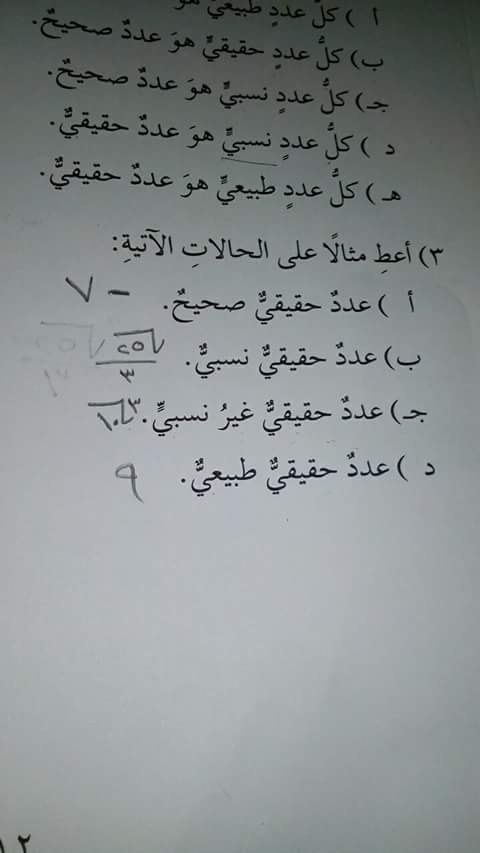 أ ) كلُّ عددٍ طبيعيٍّ هوَ
ب) كلُّ عددٍ حقيقيٍّ هوَ عددٌ صحيحٌ.
جـ) كلُّ عددٍ نسبيٍّ هوَ عددٌ صحيحٌ.
د ) كلُّ عددٍ نسبيٍّ هوَ عددٌ حقيقيٌّ.
هـ) كلُّ عددٍ طبيعيٍّ هوَ عددٌ حقيقيٌّ.
٣) أعطِ مثالًا على الحالاتِ الآتيةِ:
أ ) عددٌ حقيقيٌّ صحيحٌ. ٧ -
ب) عددٌ حقيقيٌّ نسبيٌّ. √٢٥ / ٣
جـ) عددٌ حقيقيٌّ غيرُ نسبيٍّ. ∛١٠
د ) عددٌ حقيقيٌّ طبيعيٌّ. ٩